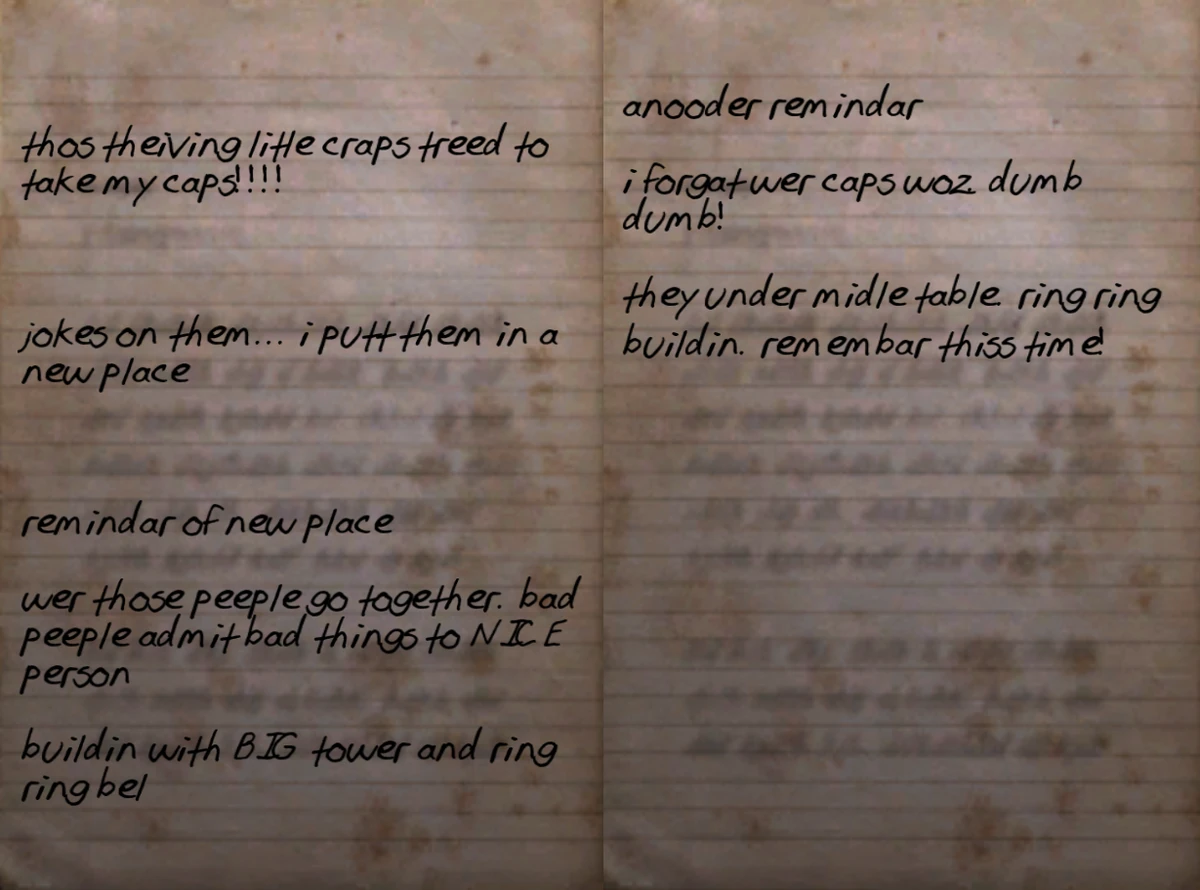 thos theiving litle craps treed to
take my caps!!!!
jokes on them... i putt them in a
new place
remindar of new place
wer those peeple go together. bad
peeple admit bad things to NICE
person
buildin with BIG tower and ring
ring bel
anooder remindar
i forgat wer caps woz. dumb
dumb!
they under midle table. ring ring
buildin. remembar thiss time!